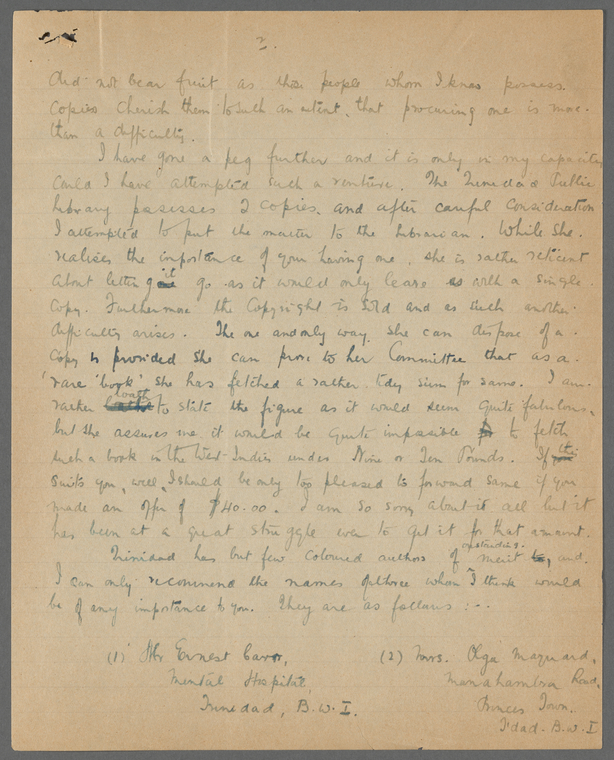 2.
did not bear fruit as those people whom I know possess
copies cherish them to such an extent, that procuring one is more
than a difficulty.
I have gone a peg further and it is only in my capacity
could I have attempted such a venture. The Trinidad Public
Library posesses 2 copies, and after careful consideration
I attempted to put the matter to the Librarian. While she
realises the importance of your having one, she is rather reticent
about letting it go as it would only leave us with a single
copy. Furthermore the Copyright is Sold and as such another
difficulty arises. The one and only way she can dispose of a
Copy is provided she can prove to her Committee that as a
'rare book' she has fetched a rather tidy sum for same. I am
rather loath to state the figure as it would seem quite fabulous,
but she assures me it would be quite impossible to fetch
such a book in the West-Indies under Nine or Ten Pounds. If this
suits you, well, I should be only too pleased to forward same if you
made an offer of $40.00. I am so sorry about it all but it
has been at a great struggle even to get it for that amount.
Trinidad has but few coloured authors of outstanding merit, and
I can only recommend the names of those whom I think would
be of any importance to you. They are as follows :-
(1) Mr Ernest
Mental Hospital,
Trinidad, B.W.I.
(2) Mrs. Olga
Manahambre Road,
Princes Town.
T'dad. B.W.I